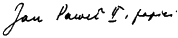 Jan Paweł II, papież